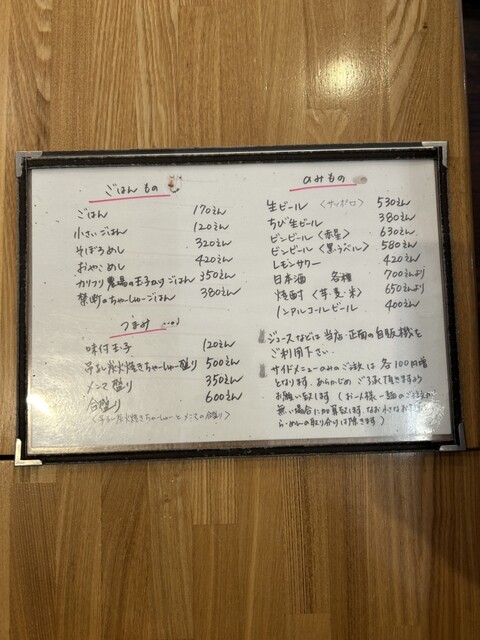 ごはんもの
ごはん 170えん
小さいごはん 120えん
そぼろめし 320えん
おやこめし 420えん
カリフリ農場の玉子かけごはん 350えん
禁断のちゃーしゅーごはん 380えん
つまみ
味付玉子 120えん
吊るし炭火焼きちゃーしゅー盛り 500えん
メンマ盛り 350えん
合盛り 600えん
〈吊るし炭火焼きちゃーしゅーとメンマの合盛り〉
のみもの
生ビール 〈サッポロ〉 530えん
ちび生ビール 380えん
ビンビール〈赤星〉 630えん
ビンビール〈黒ラベル〉 580えん
レモンサワー 420えん
日本酒 各種 700えんより
焼酎 〈芋・麦・米〉 650えんより
ノンアルコールビール 400えん
ジュースなどは当店正面の自販機を
ご利用下さい。
サイドメニューのみのご注文は各100円増
となります。あらかじめご了承頂きますよう
お願い致します（お一人様一麺のご注文が
無い場合に加算致します。なお小さなお子様
らーめんの取り分けは除きます）